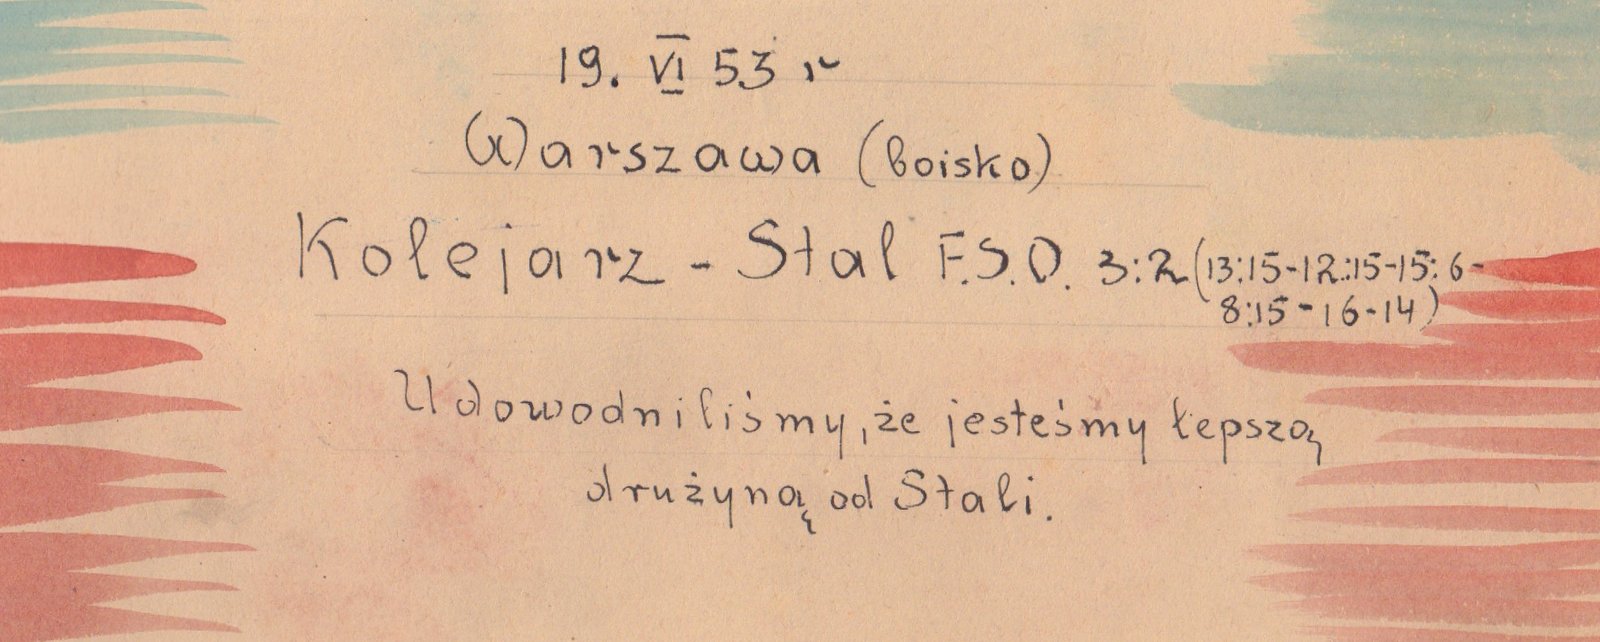 19. VI 53 r
Warszawa (boisko)
Kolejarz - Stal F.S.O. 3:2 (13:15-12:15-15:6-
8:15-16-14)
Udowodniliśmy, że jesteśmy lepszą
drużyną od Stali.